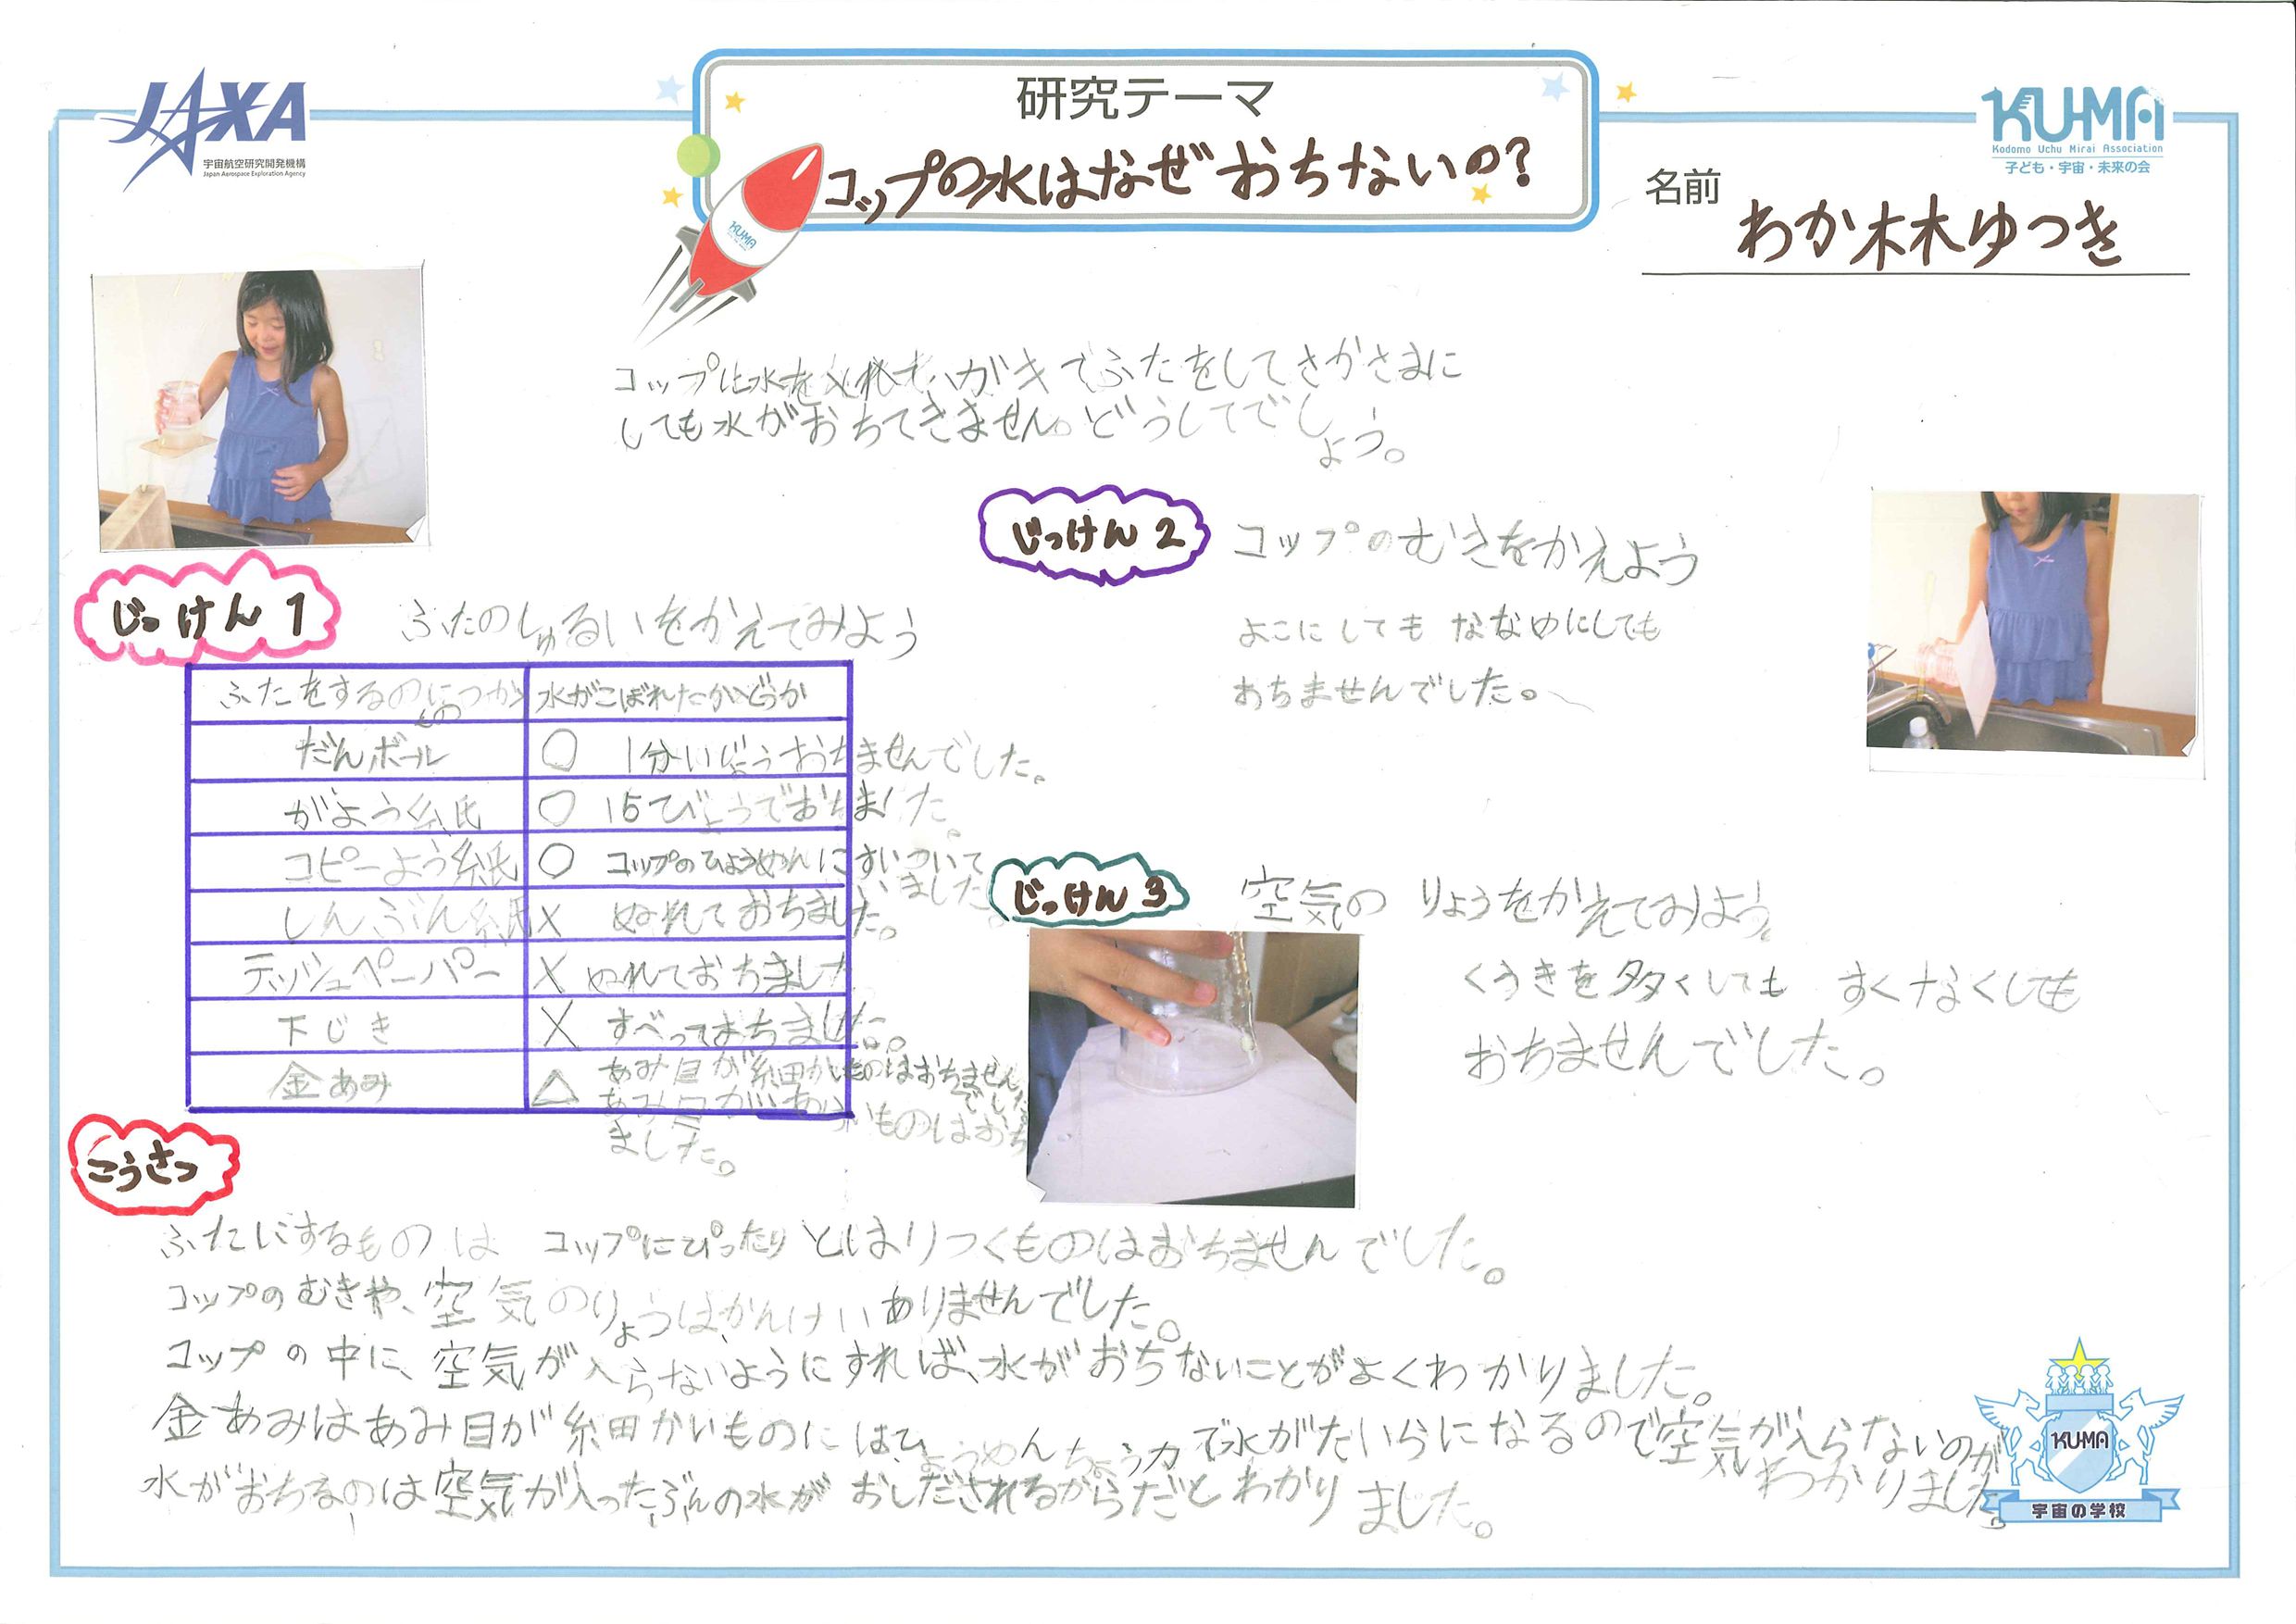 JAXA
宇宙航空研究開発機構
Japan Aerospace Exploration Agency
研究テーマ
コップの水はなぜおちないの?
KUMA
KUMA
Kodomo Uchu Mirai Association
子ども・宇宙・未来の会
名前
わか木木ゆつき
コップに水を入れてハガキでふたをしてさかさまに
しても水がおちてきません。どうしてでし
ょう。
じっけん 1
ふたのしゅるいをかえてみよう
ふたをするのにつかう もの 水がこぼれたかどうか
だんボール ○ 1分いじょうおちませんでした。
がよう紙 ○ 15びょうでおちました。
コピーよう紙 ○ コップのひょうめんにすいついて
いました。
しんぶん紙 × ぬれておちました。
テッシュペーパー × ぬれておちました。
下じき × すべっておちました。
金あみ △ あみ目が細かいものはおちません
でした
あみ目があらいものはおち
ました。
じっけん 2
コップのむきをかえよう
よこにしても ななめにしても
おちませんでした。
じっけん 3
空気の りょうをかえてみよう。
くうきを多くしても すくなくしても
おちませんでした。
こうさつ
ふたにするものは コップにぴったりとはりつくものはおちませんでした。
コップのむきや、空気のりょうはかんけいありませんでした。
コップの中に、空気が入らないようにすれば、水がおちないことがよくわかりました。
金あみはあみ目が細かいものにはひょうめんちょう力で水がたいらになるので空気が入らないのが
わかりました。
水がおちるのは空気が入ったぶんの水がおしだされるからだとわかりました。
KUMA
宇宙の学校